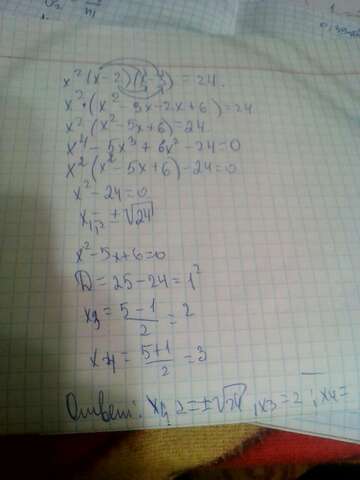 x²(x-2)(x-3) = 24.
x²·(x²-3x-2x+6)=24
x²(x²-5x+6)=24
x⁴-5x³+6x²-24=0
x²(x²-5x+6)-24=0
x²-24=0
x₁,₂=±√24
x²-5x+6=0
D=25-24=1²
x₃=(5-1)/2=2
x₄=(5+1)/2=3
Ответ: x₁,₂=±√24, x₃=2; x₄=